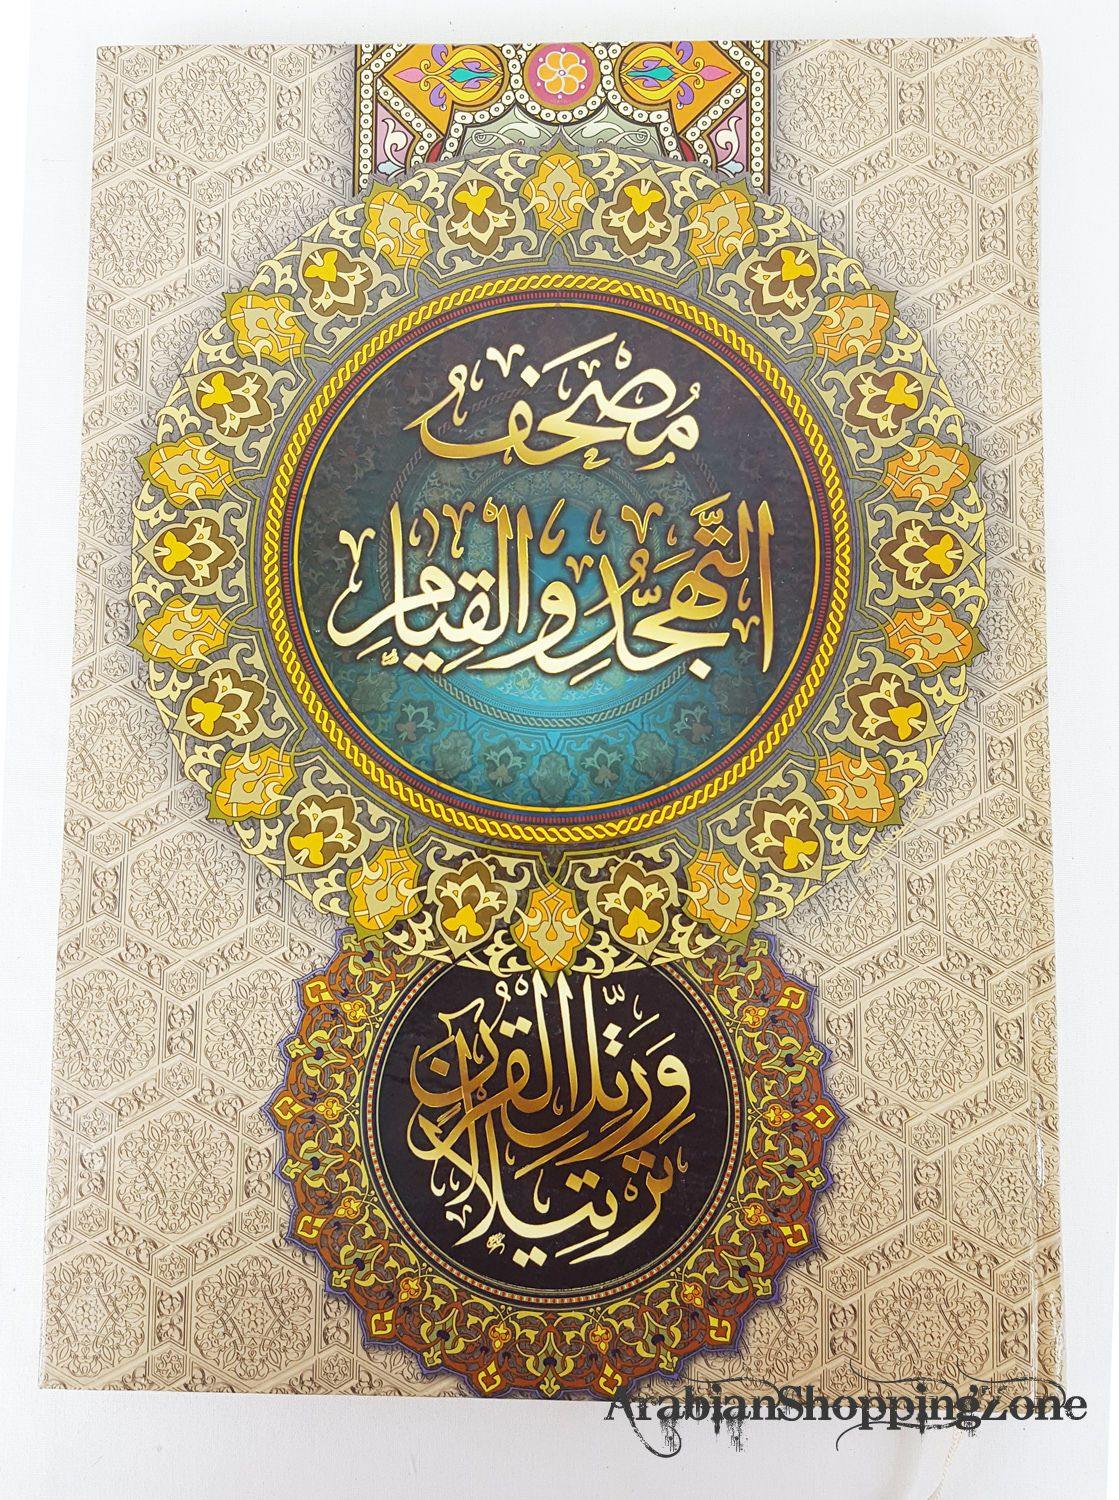 مُصْحَفُ
التَّهَجُّدِ وَالْقِيَامِ
وَرَتِّلِ الْقُرْآنَ
تَرْتِيلًا
ArabianShoppingZone